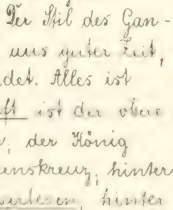 Der Stil des Gan-
aus guter Zeit,
det. Alles ist
ist der obere
, der König
enskreuz, hinter
hinter